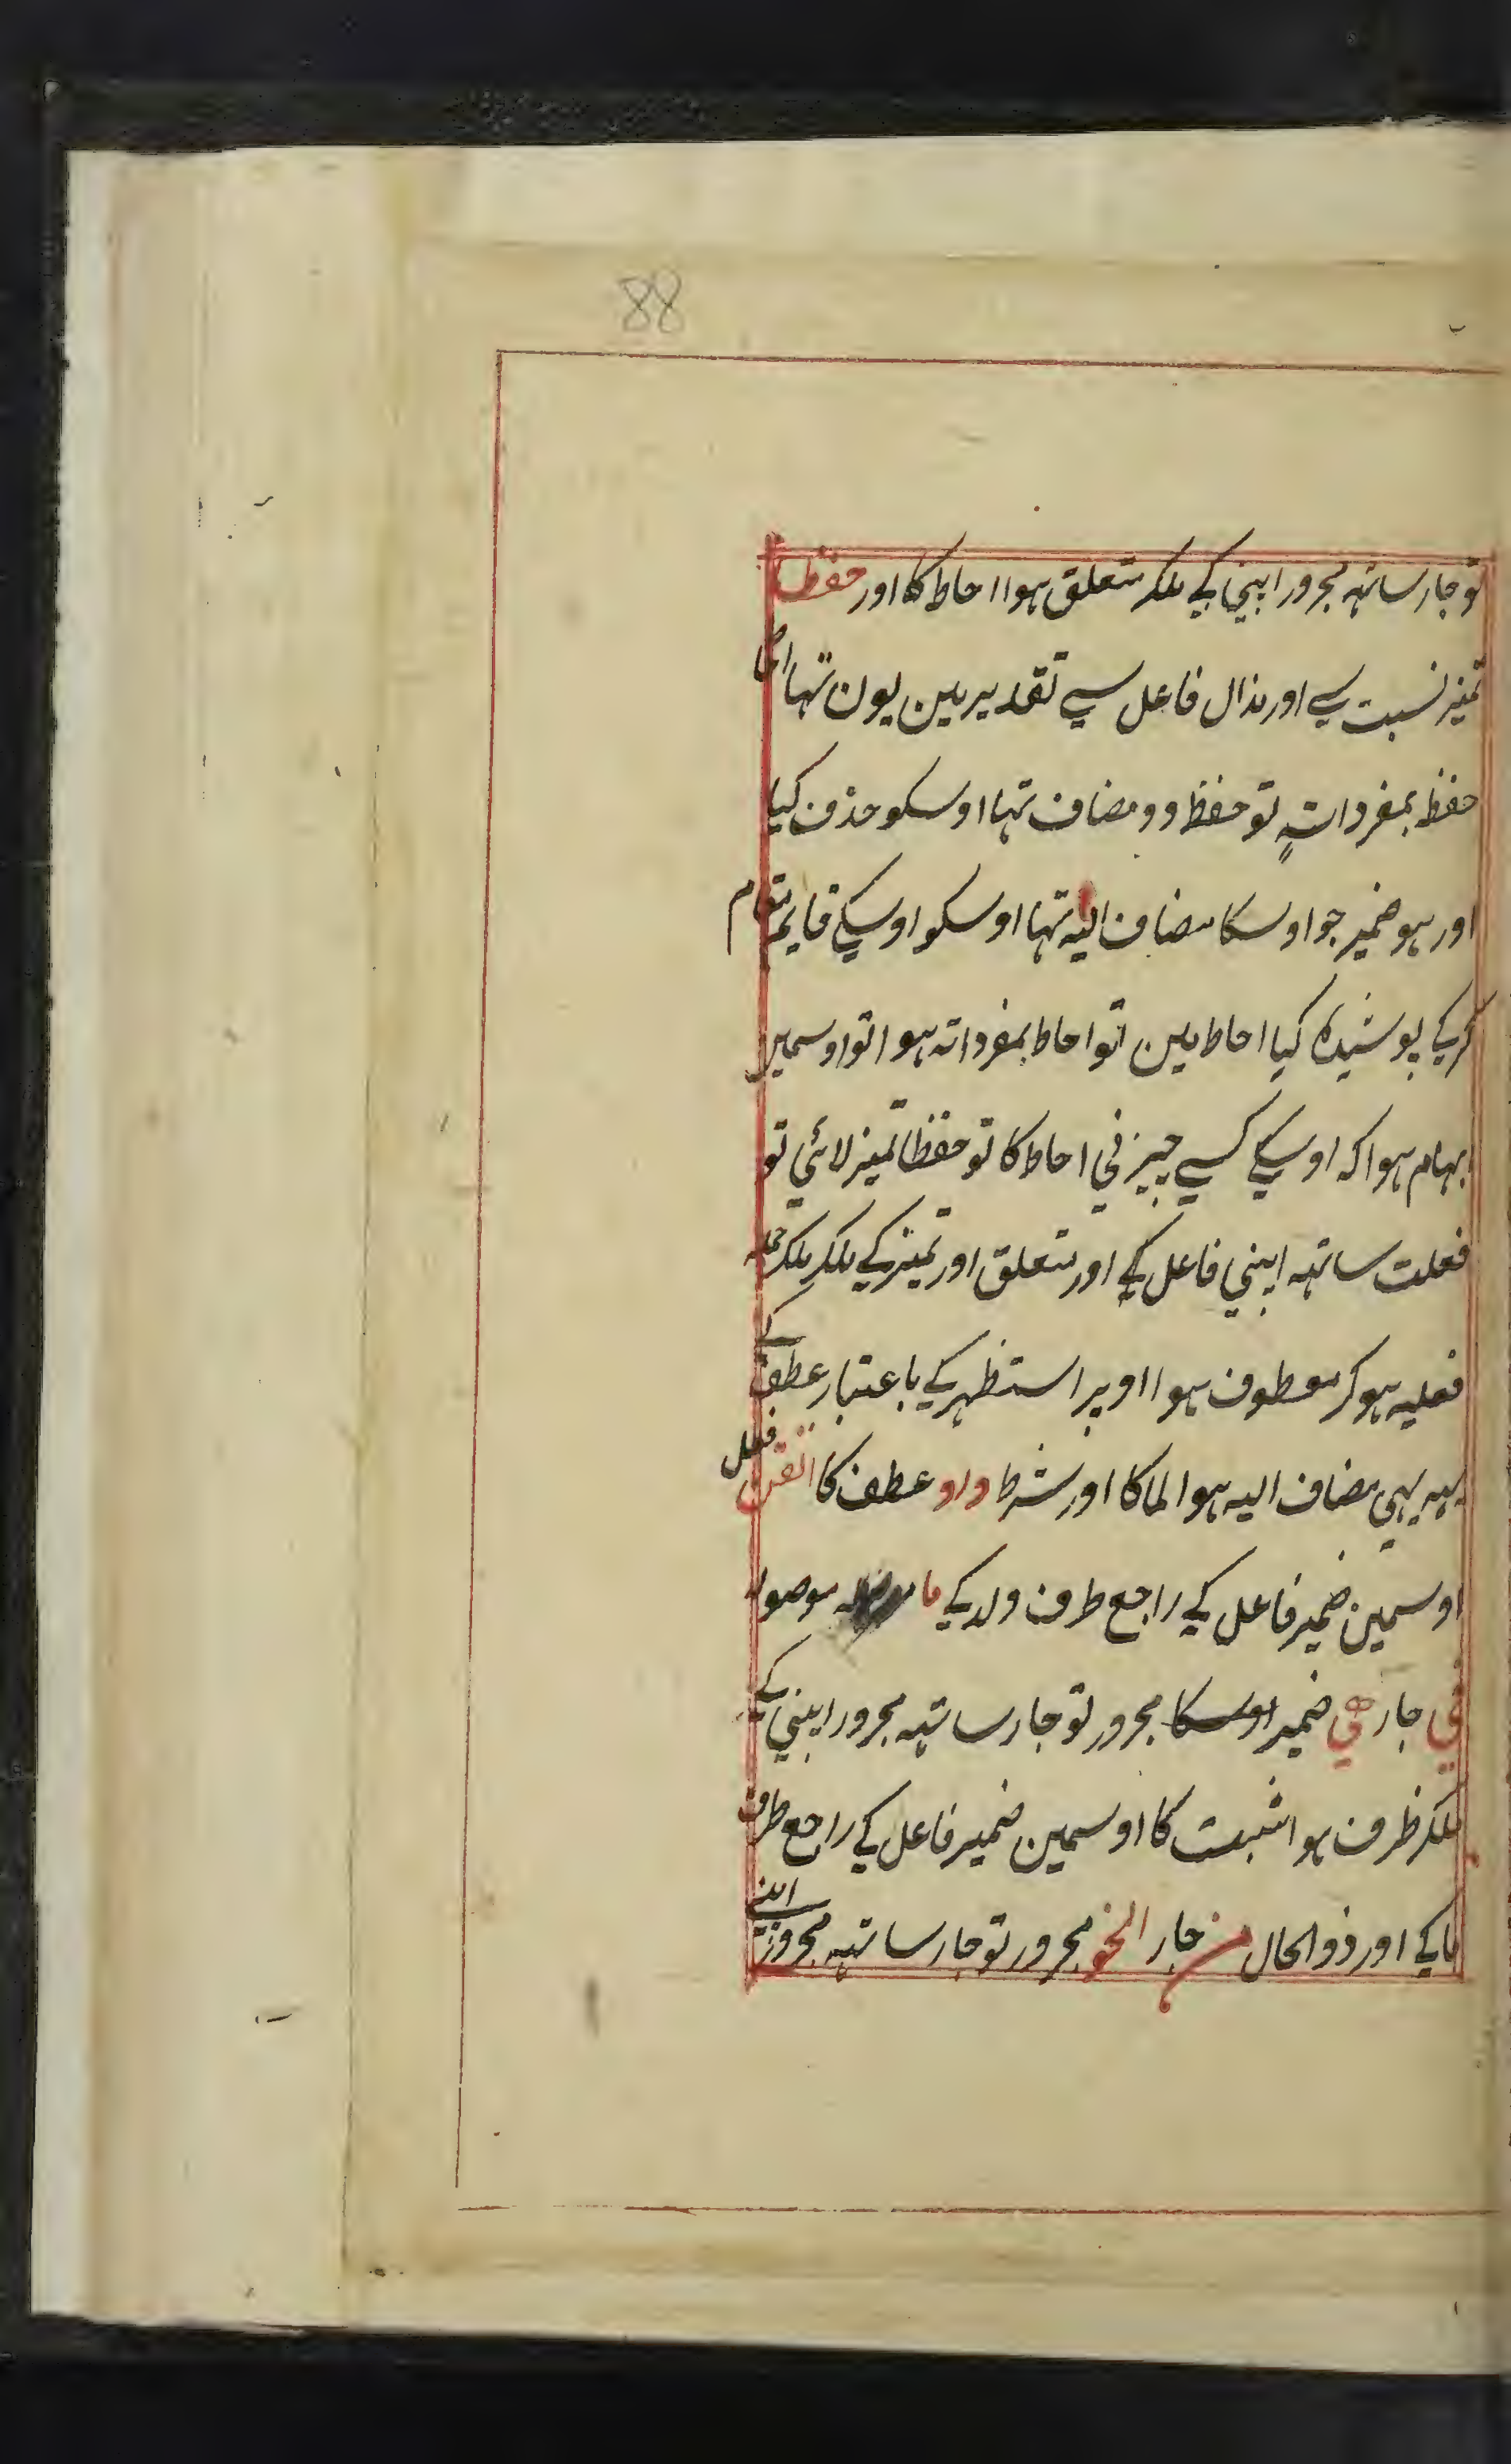 88
تو جار ساتهہ مجرور اپني کے ملکر متعلق ہوا احاط کا اور حفظا
تمیز نسبت سے اور مذال فاعل سے تقدیر مین یون تہا احاط
حفظ بمفرداتہٖ تو حفظ وو مضاف تہا اوسکو حذف کیا
اور ہو ضمیر جو اوسکا مضاف الیہ تہا اوسکو اوسکے قایم مقام
کرکے پوشیدہ کیا احاط مین تو احاط بمفرداتہ ہوا تو اوسمین
ابہام ہوا کہ اوسکے کسے چیز في احاط کا تو حفظا تمیز لائي تو
فعلت ساتهہ اپني فاعل کے اور متعلق اور تمیز کے ملکر ملکر جملہ
فعلیہ ہو کر معطوف ہوا اوپر استظهر کے باعتبار عطف کے
یہہ بہي مضاف الیہ ہوا لما کا اور شرط واو عطف کا اتقن فعل
اوسمین ضمیر فاعل کے راجع طرف ولد کے ما موصولہ
في جار هي ضمیر اوسکا مجرور تو جار ساتهہ مجرور اپني کے
ملکر ظرف ہوا ثبت کا اوسمین ضمیر فاعل کے راجع طرف
ما کے اور ذوالحال من جار النحو مجرور تو جار ساتهہ مجرور اپنے